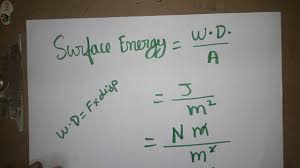 Surface Energy = W.D. / A
W.D = F x disp
= J / m²
= N m / m²